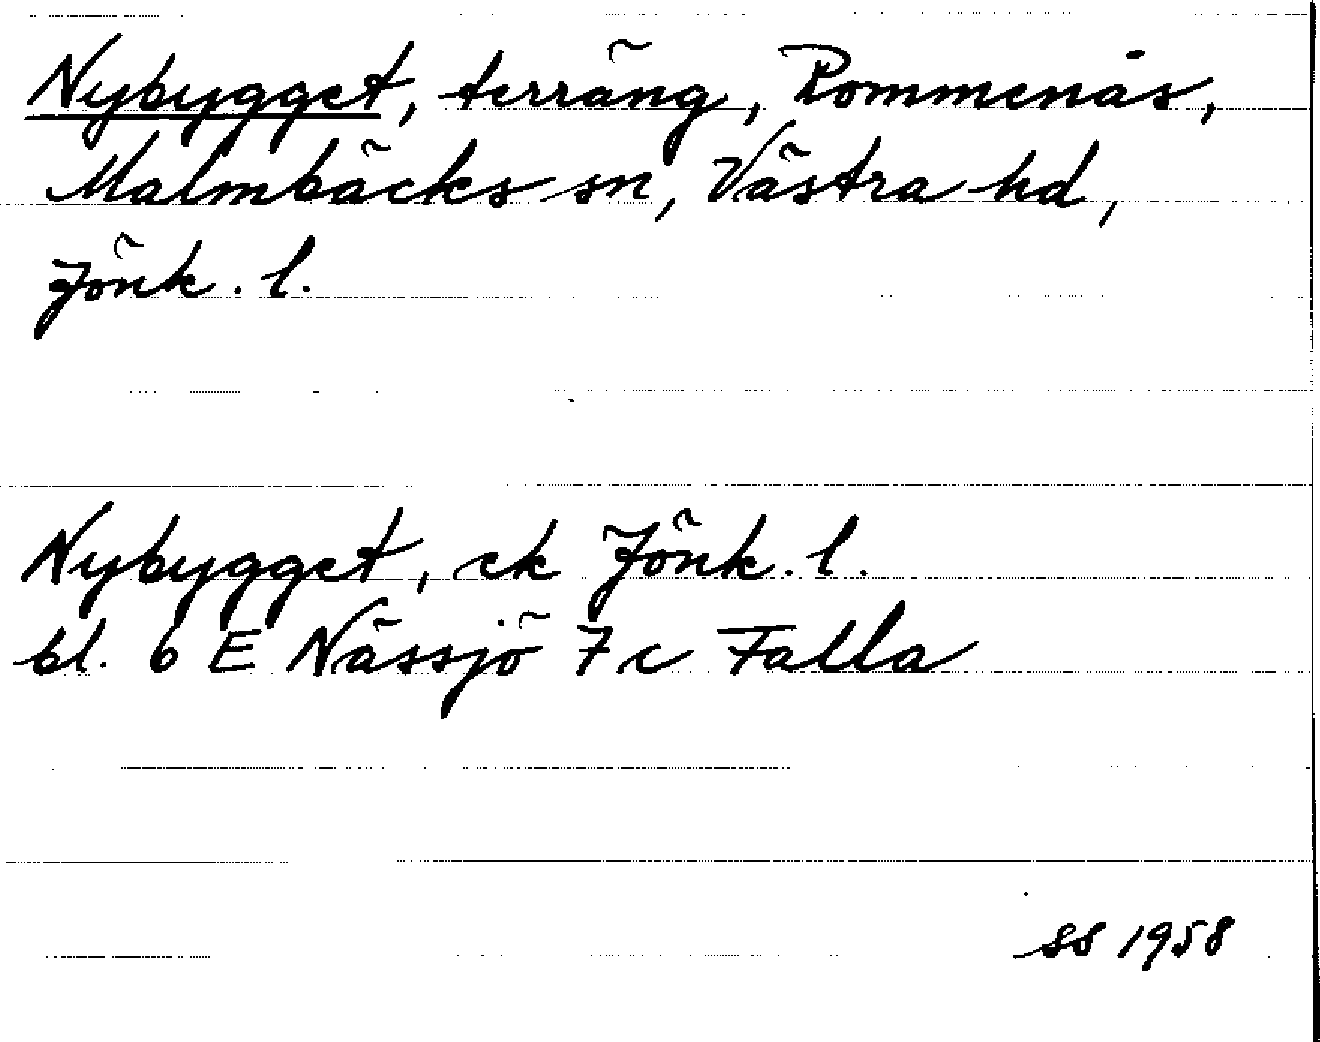 Nybygget, terräng, Rommenås,
Malmbäcks sn, Västra hd,
Jönk. l.
Nybygget, ek Jönk. l.
bl. 6 E Nässjö 7 c Falla
SS 1958